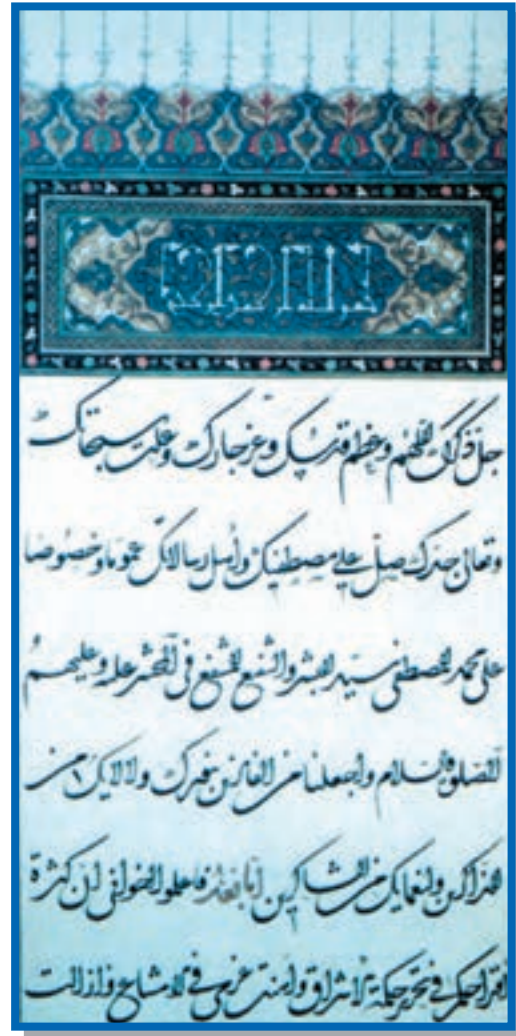 جل ذكرك اللهم وعظم قدسك وعز جارك وعلت سبحاتك
وتعالى جدك صل على مصطفيك وأهل رسالاتك عموما وخصوصا
على محمد المصطفى سيد البشر والشفيع المشفع في المحشر عليه وعليهم
الصلوة والسلام واجعلنا من الفائزين بنورك ولآلائك من
الذاكرين ولنعمائك من الشاكرين أما بعد فاعلموا إخواني أن كثرة
اقتراحكم في تحرير حكمة الاشراق وأوهنت عزمي في الامتناع وأزالت